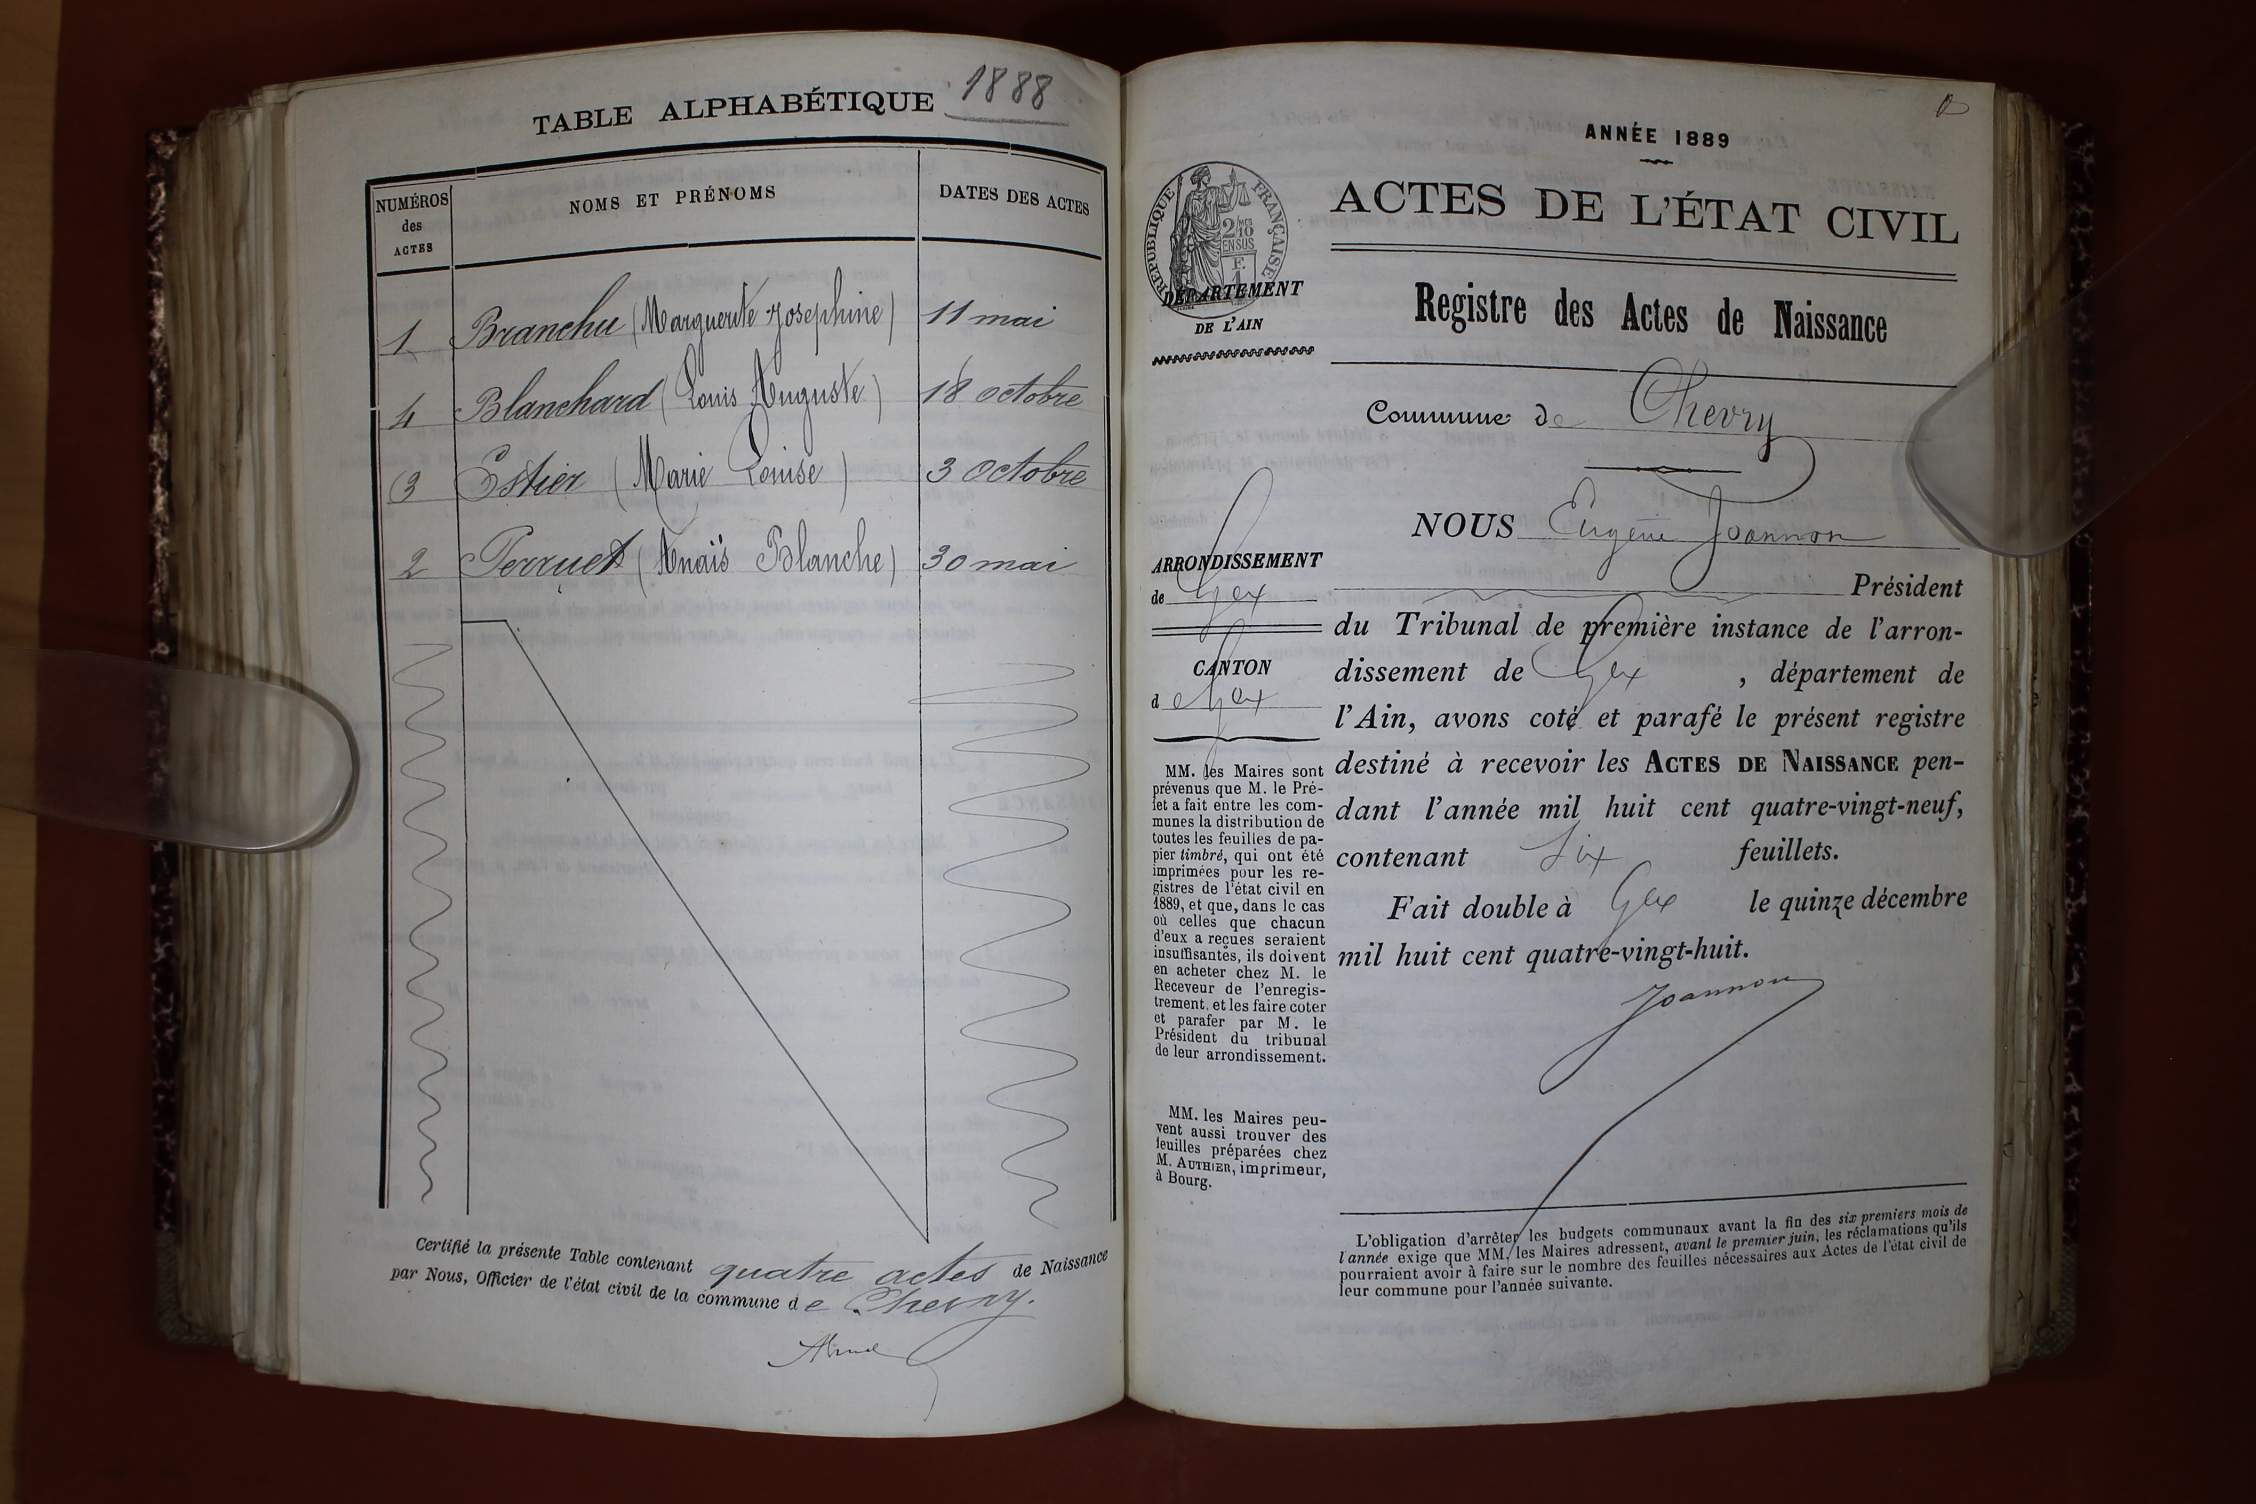 TABLE ALPHABÉTIQUE 1888
NUMÉROS des ACTES
NOMS ET PRÉNOMS
DATES DES ACTES
1 Branchu (Marguerite Josephine) 11 mai
4 Blanchard (Louis Auguste) 18 octobre
3 Estier (Marie Louise) 3 Octobre
2 Perruet (Anaïs Blanche) 30 mai
Certifié la présente Table contenant quatre actes de Naissance
par Nous, Officier de l'état civil de la commune de Chevry.
ANNÉE 1889
RÉPUBLIQUE FRANÇAISE
2/10 EN SUS
F.
1
DÉPARTEMENT
DE L'AIN
ACTES DE L'ÉTAT CIVIL
Registre des Actes de Naissance
Commune de Chevry
ARRONDISSEMENT
de Gex
CANTON
de Gex
MM. les Maires sont
prévenus que M. le Pré-
fet a fait entre les com-
munes la distribution de
toutes les feuilles de pa-
pier timbré, qui ont été
imprimées pour les re-
gistres de l'état civil en
1889, et que, dans le cas
où celles que chacun
d'eux a reçues seraient
insuffisantes, ils doivent
en acheter chez M. le
Receveur de l'enregis-
trement, et les faire coter
et parafer par M. le
Président du tribunal
de leur arrondissement.
MM. les Maires peu-
vent aussi trouver des
feuilles préparées chez
M. AUTHIER, imprimeur,
à Bourg.
NOUS Eugène Joannon
Président
du Tribunal de première instance de l'arron-
dissement de Gex , département de
l'Ain, avons coté et parafé le présent registre
destiné à recevoir les ACTES DE NAISSANCE pen-
dant l'année mil huit cent quatre-vingt-neuf,
contenant six feuillets.
Fait double à Gex le quinze décembre
mil huit cent quatre-vingt-huit.
Joannon
L'obligation d'arrêter les budgets communaux avant la fin des six premiers mois de
l'année exige que MM. les Maires adressent, avant le premier juin, les réclamations qu'ils
pourraient avoir à faire sur le nombre des feuilles nécessaires aux Actes de l'état civil de
leur commune pour l'année suivante.